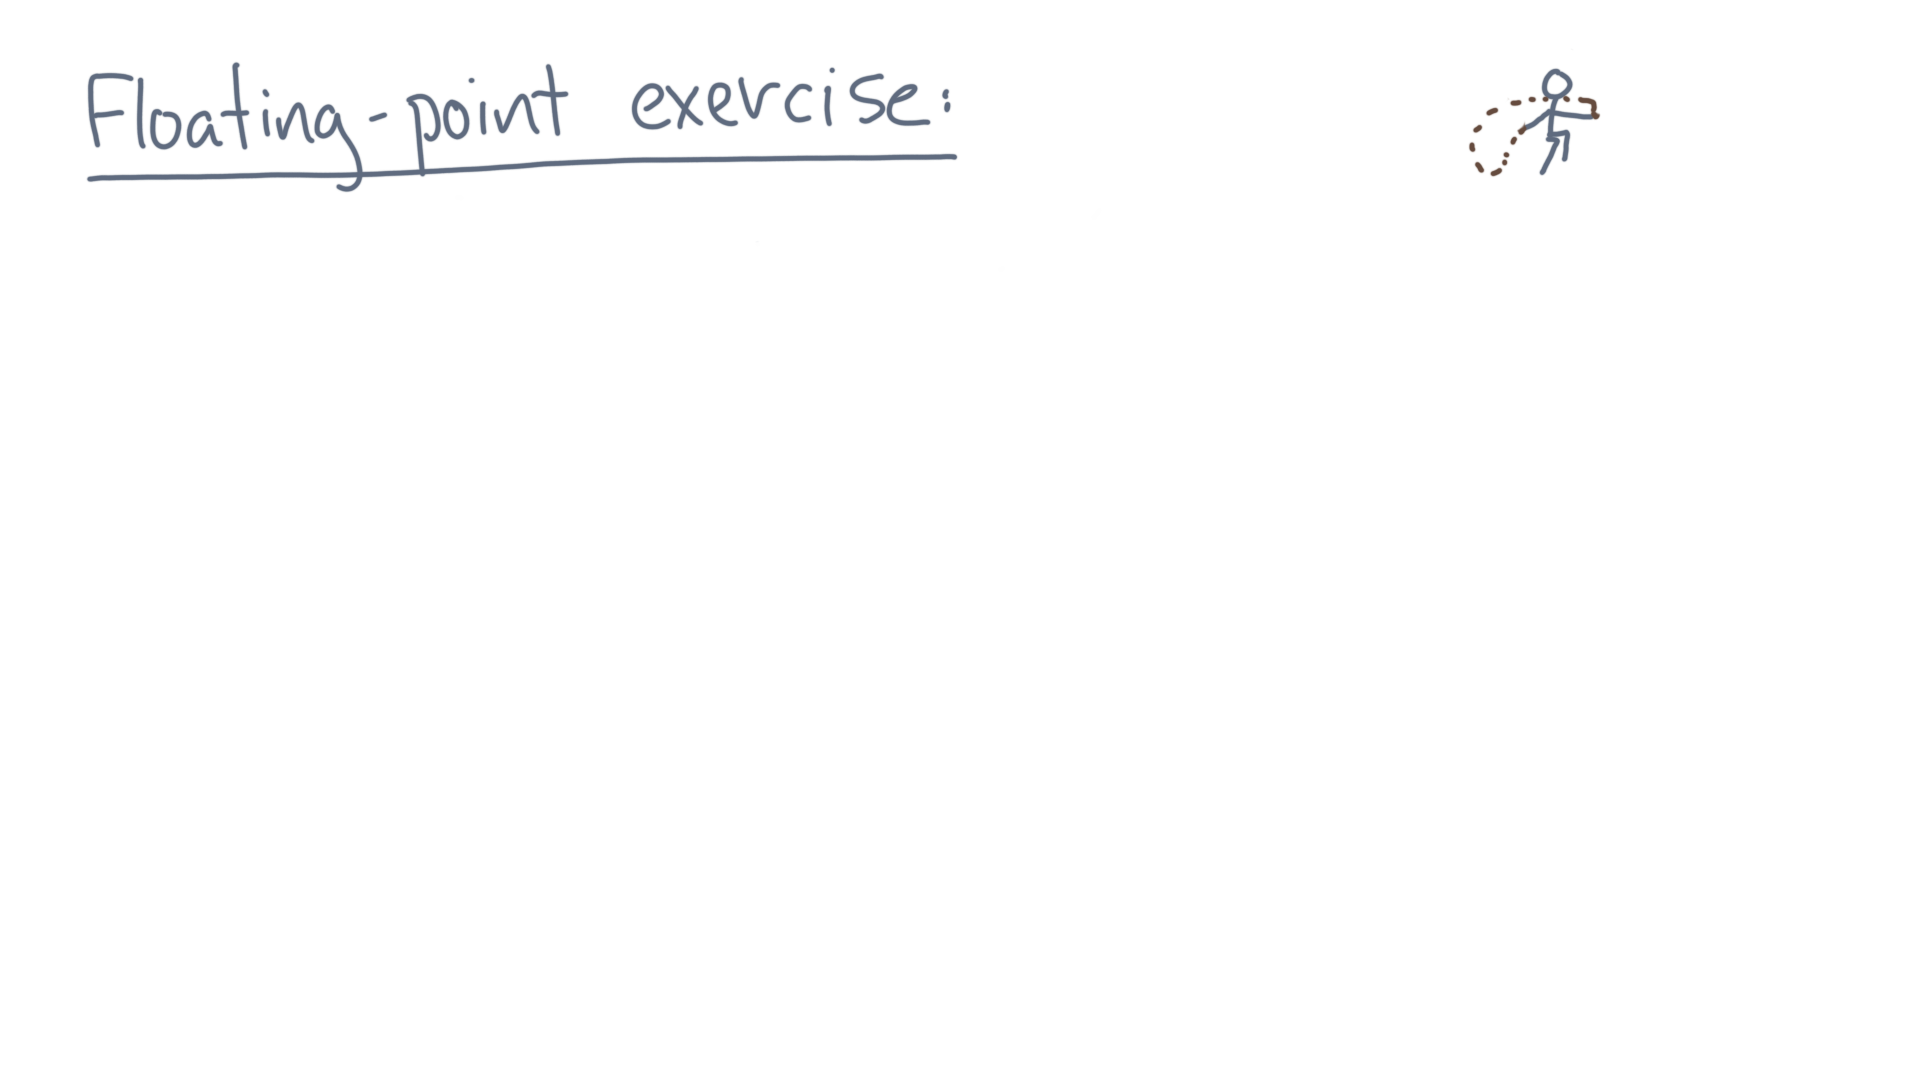 Floating-point exercise: